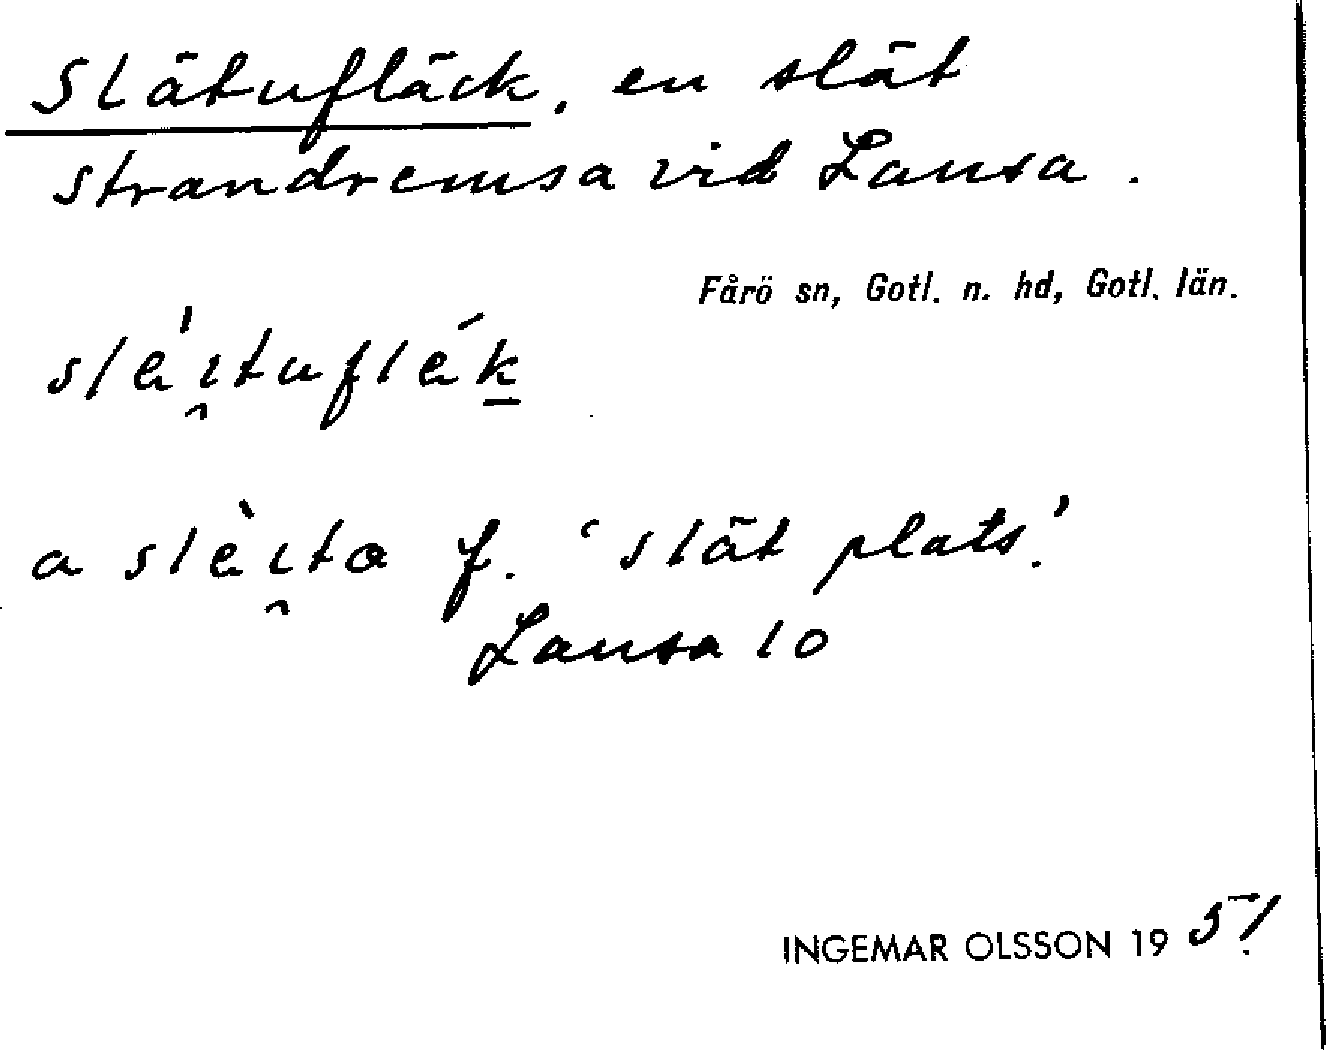 Slätufläck, en slät
strandremsa vid Lansa.
Fårö sn, Gotl. n. hd, Gotl. län.
slá̈ɩ̯tuflák
a slàɩ̯ta f. 'slät plats'.
Lansa 10
INGEMAR OLSSON 1951.